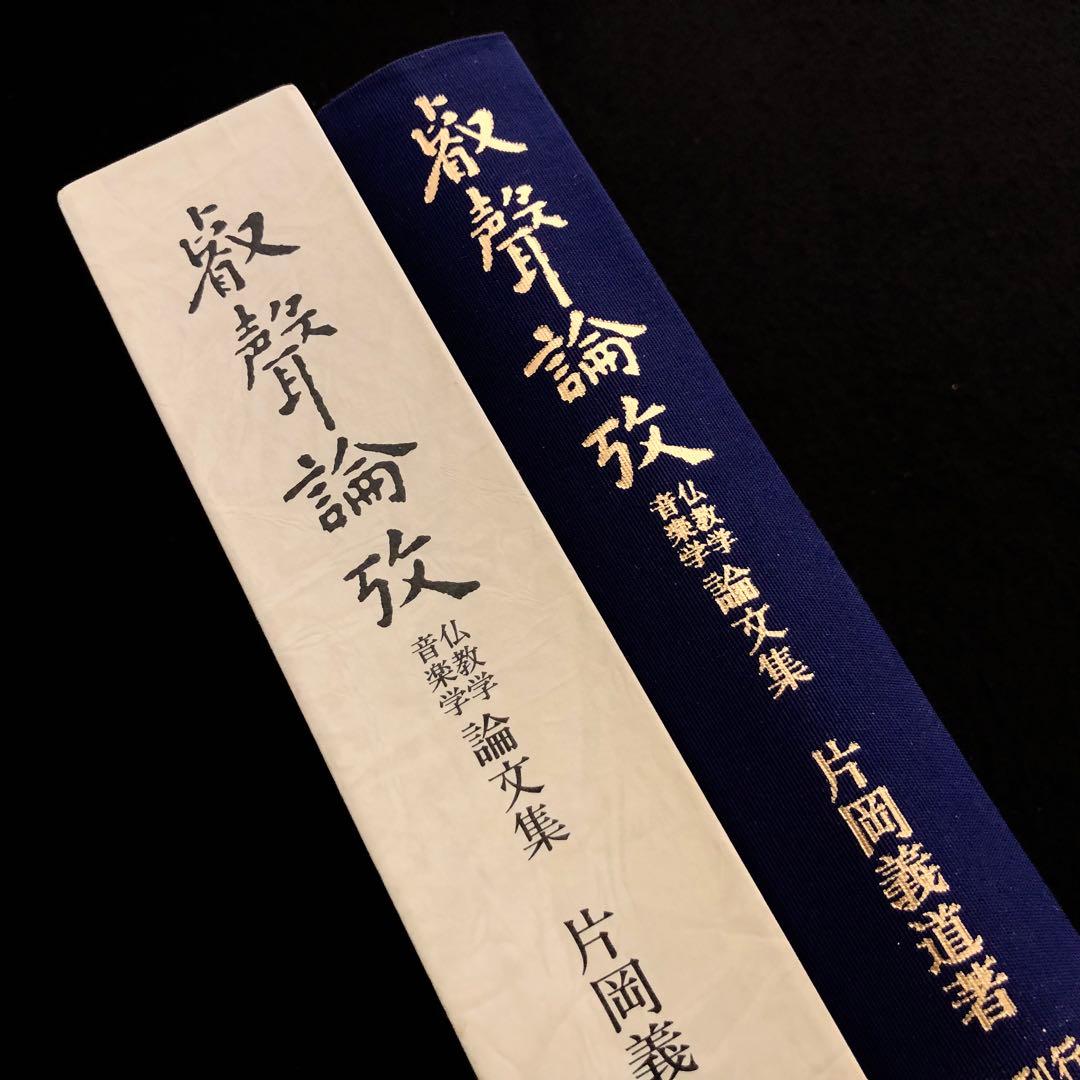 叡聲論攷
仏教学
音楽学
論文集
片岡義
叡聲論攷
仏教学
音楽学
論文集
片岡義道著
刊行